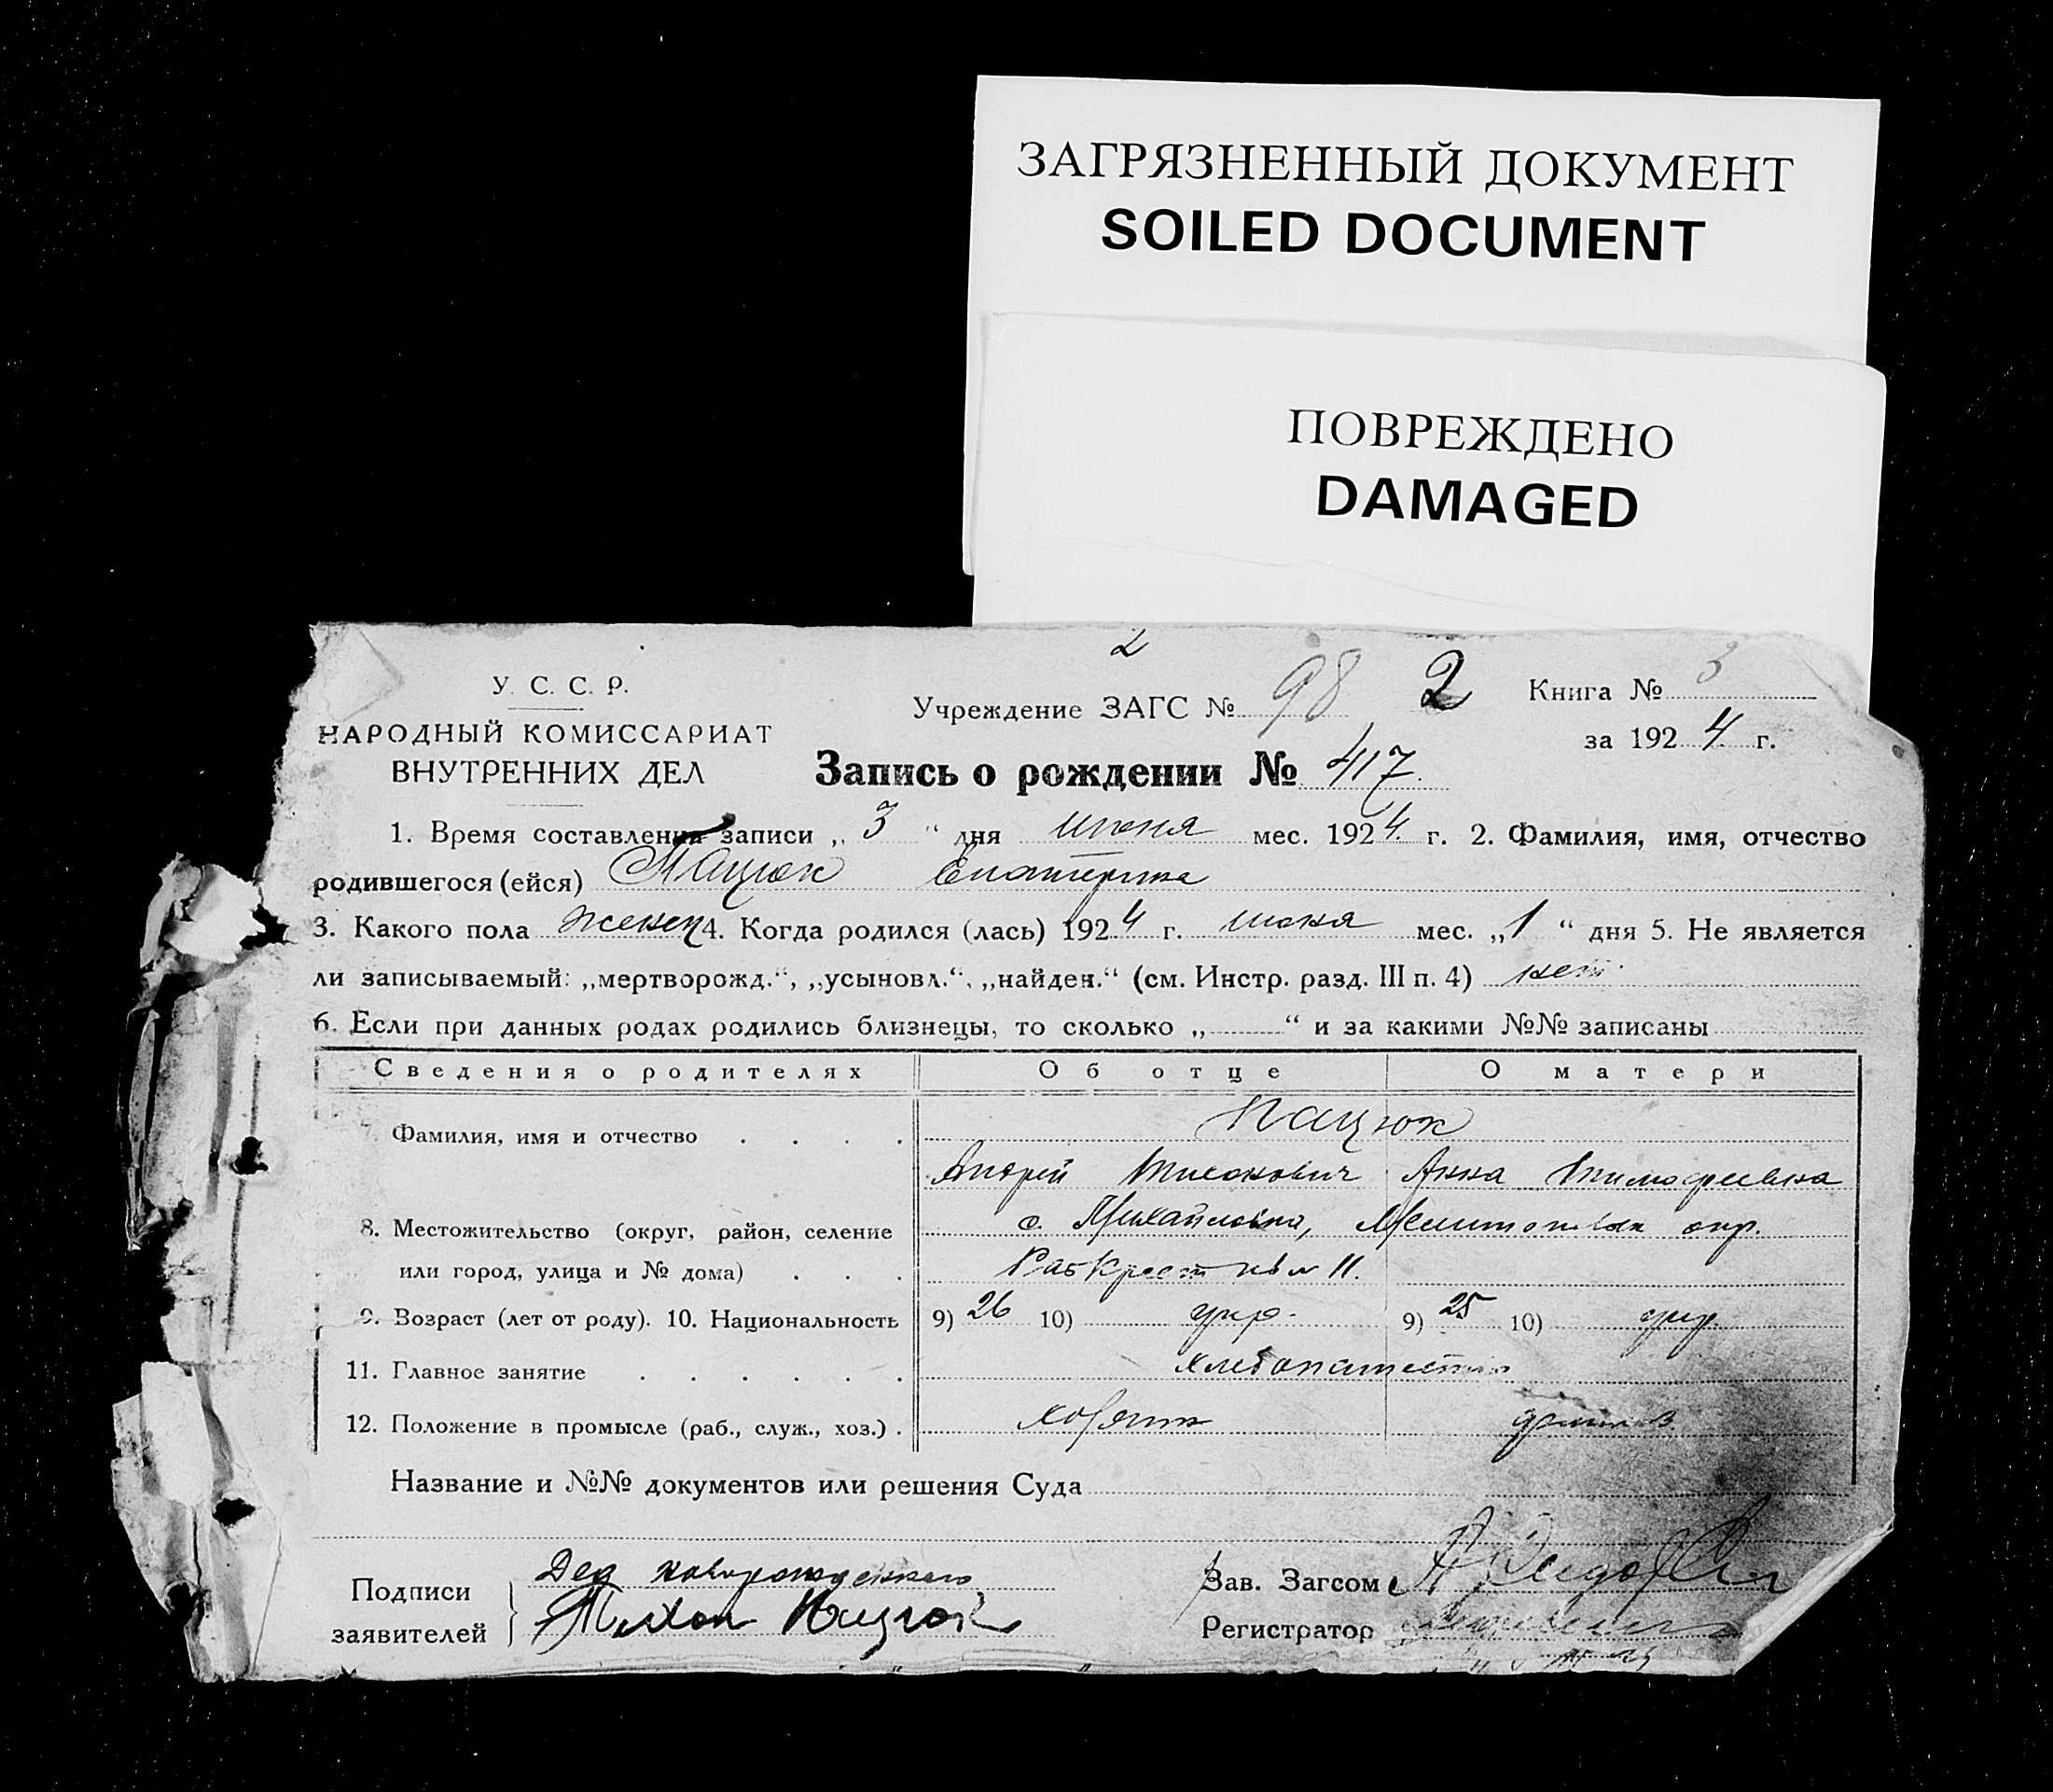 ЗАГРЯЗНЕННЫЙ ДОКУМЕНТ
SOILED DOCUMENT
ПОВРЕЖДЕНО
DAMAGED
2
У. С. С. Р.
НАРОДНЫЙ КОМИССАРИАТ
ВНУТРЕННИХ ДЕЛ
Учреждение ЗАГС № 98 2
Книга № 3
за 1924 г.
Запись о рождении № 417
1. Время составления записи „ 3 “ дня июня мес. 1924 г. 2. Фамилия, имя, отчество
родившегося (ейся) Пацюк Екатерина
3. Какого пола женск 4. Когда родился (лась) 1924 г. июня мес. „1“ дня 5. Не является
ли записываемый: „мертворожд.“, „усыновл.“, „найден.“ (см. Инстр. разд. III п. 4) нет
6. Если при данных родах родились близнецы, то сколько „ “ и за какими №№ записаны
Сведения о родителях Об отце О матери
7. Фамилия, имя и отчество Пацюк
Андрей Тихонович Анна Тимофеевна
8. Местожительство (округ, район, селение с. Михайловка, Мелитопольск окр.
или город, улица и № дома) 11.
9. Возраст (лет от роду). 10. Национальность 9) 26 10) укр. 9) 25 10) укр.
11. Главное занятие хлебопашество
12. Положение в промысле (раб., служ., хоз.) хозяин
Название и №№ документов или решения Суда
Подписи
заявителей
Дед новорожденного
Тихон Пацюк
Зав. Загсом
Регистратор